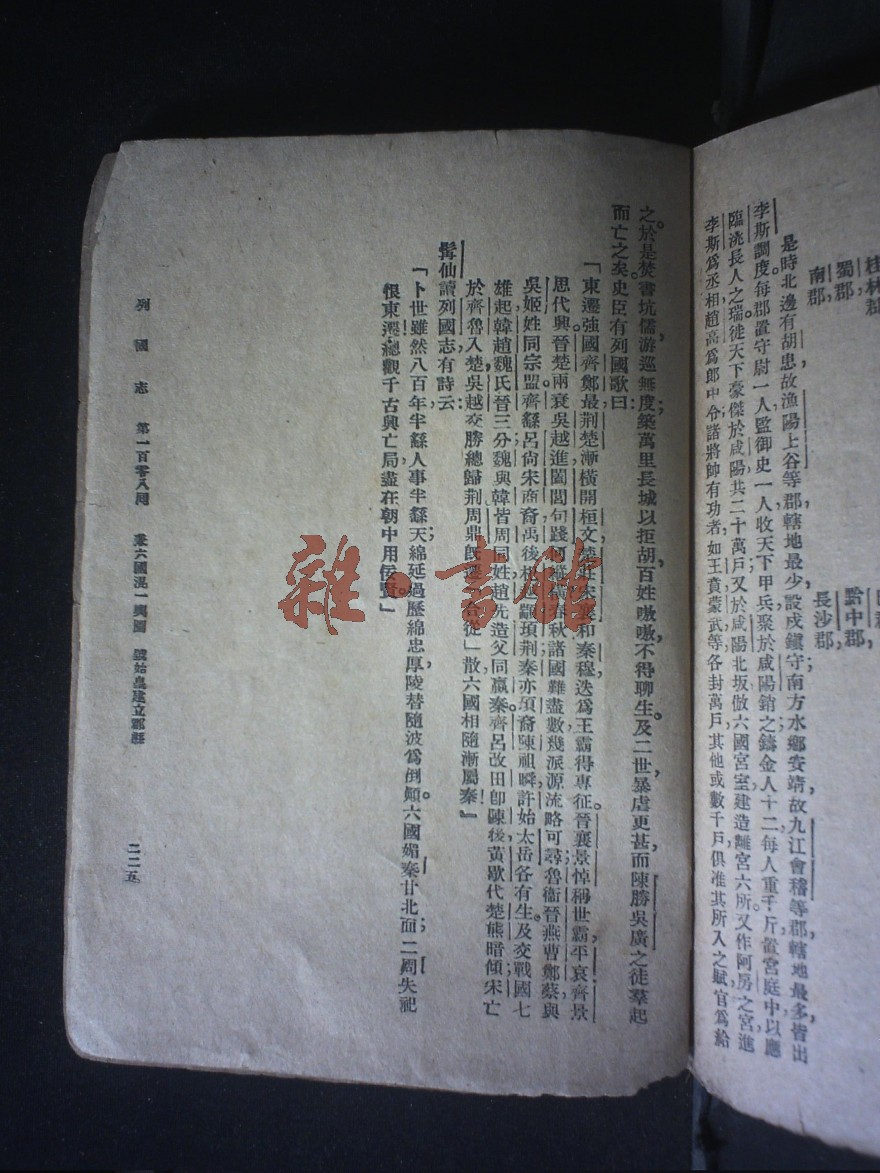 桂林郡
蜀郡
南郡
黔中郡
長沙郡
是時北邊有胡患故漁陽上谷等郡轄地最少設戍鎮守南方水鄉安靖故九江會稽等郡轄地最多皆出
李斯調度每郡置守尉一人監御史一人收天下甲兵聚於咸陽銷之鑄金人十二每人重千斤置宮庭中以應
臨洮長人之瑞徙天下豪傑於咸陽共二十萬戶又於咸陽北坂倣六國宮室建造離宮六所又作阿房之宮進
李斯爲丞相趙高爲郎中令諸將帥有功者如王賁蒙武等各封萬戶其他或數千戶俱准其所入之賦官爲給
之於是焚書坑儒游巡無度築萬里長城以拒胡百姓嗷嗷不得聊生及二世暴虐更甚而陳勝吳廣之徒羣起
而亡之矣史臣有列國歌曰
「東遷強國齊鄭最荆楚漸橫開桓文楚莊宋襄和秦穆迭爲王霸得專征晉襄景悼稱世霸平哀齊景
思代興晉楚兩衰吳越進闔閭句踐春秋諸國難盡數幾派源流略可尋魯衞晉燕曹鄭蔡與
吳姬姓同宗盟齊繇呂尙宋商裔禹後杞顓頊荆秦亦頊裔陳祖舜許始太岳各有生及交戰國七
雄起韓趙魏氏晉三分魏與韓皆周同姓趙先造父同嬴秦齊呂改田卽陳後黃歇代楚熊暗傾宋亡
於齊魯入楚吳越交勝總歸荆周鼎旣遷合從」散六國相隨漸屬秦』
髯仙讀列國志有詩云
「卜世雖然八百年半繇人事半繇天綿延過歷綿忠厚陵替隨波爲倒顛六國媚秦甘北面二周失祀
恨東遷總觀千古興亡局盡在朝中用佞賢」
列國志 第一百零八回 兼六國混一輿圖 號始皇建立郡縣
二二五
雜·書館